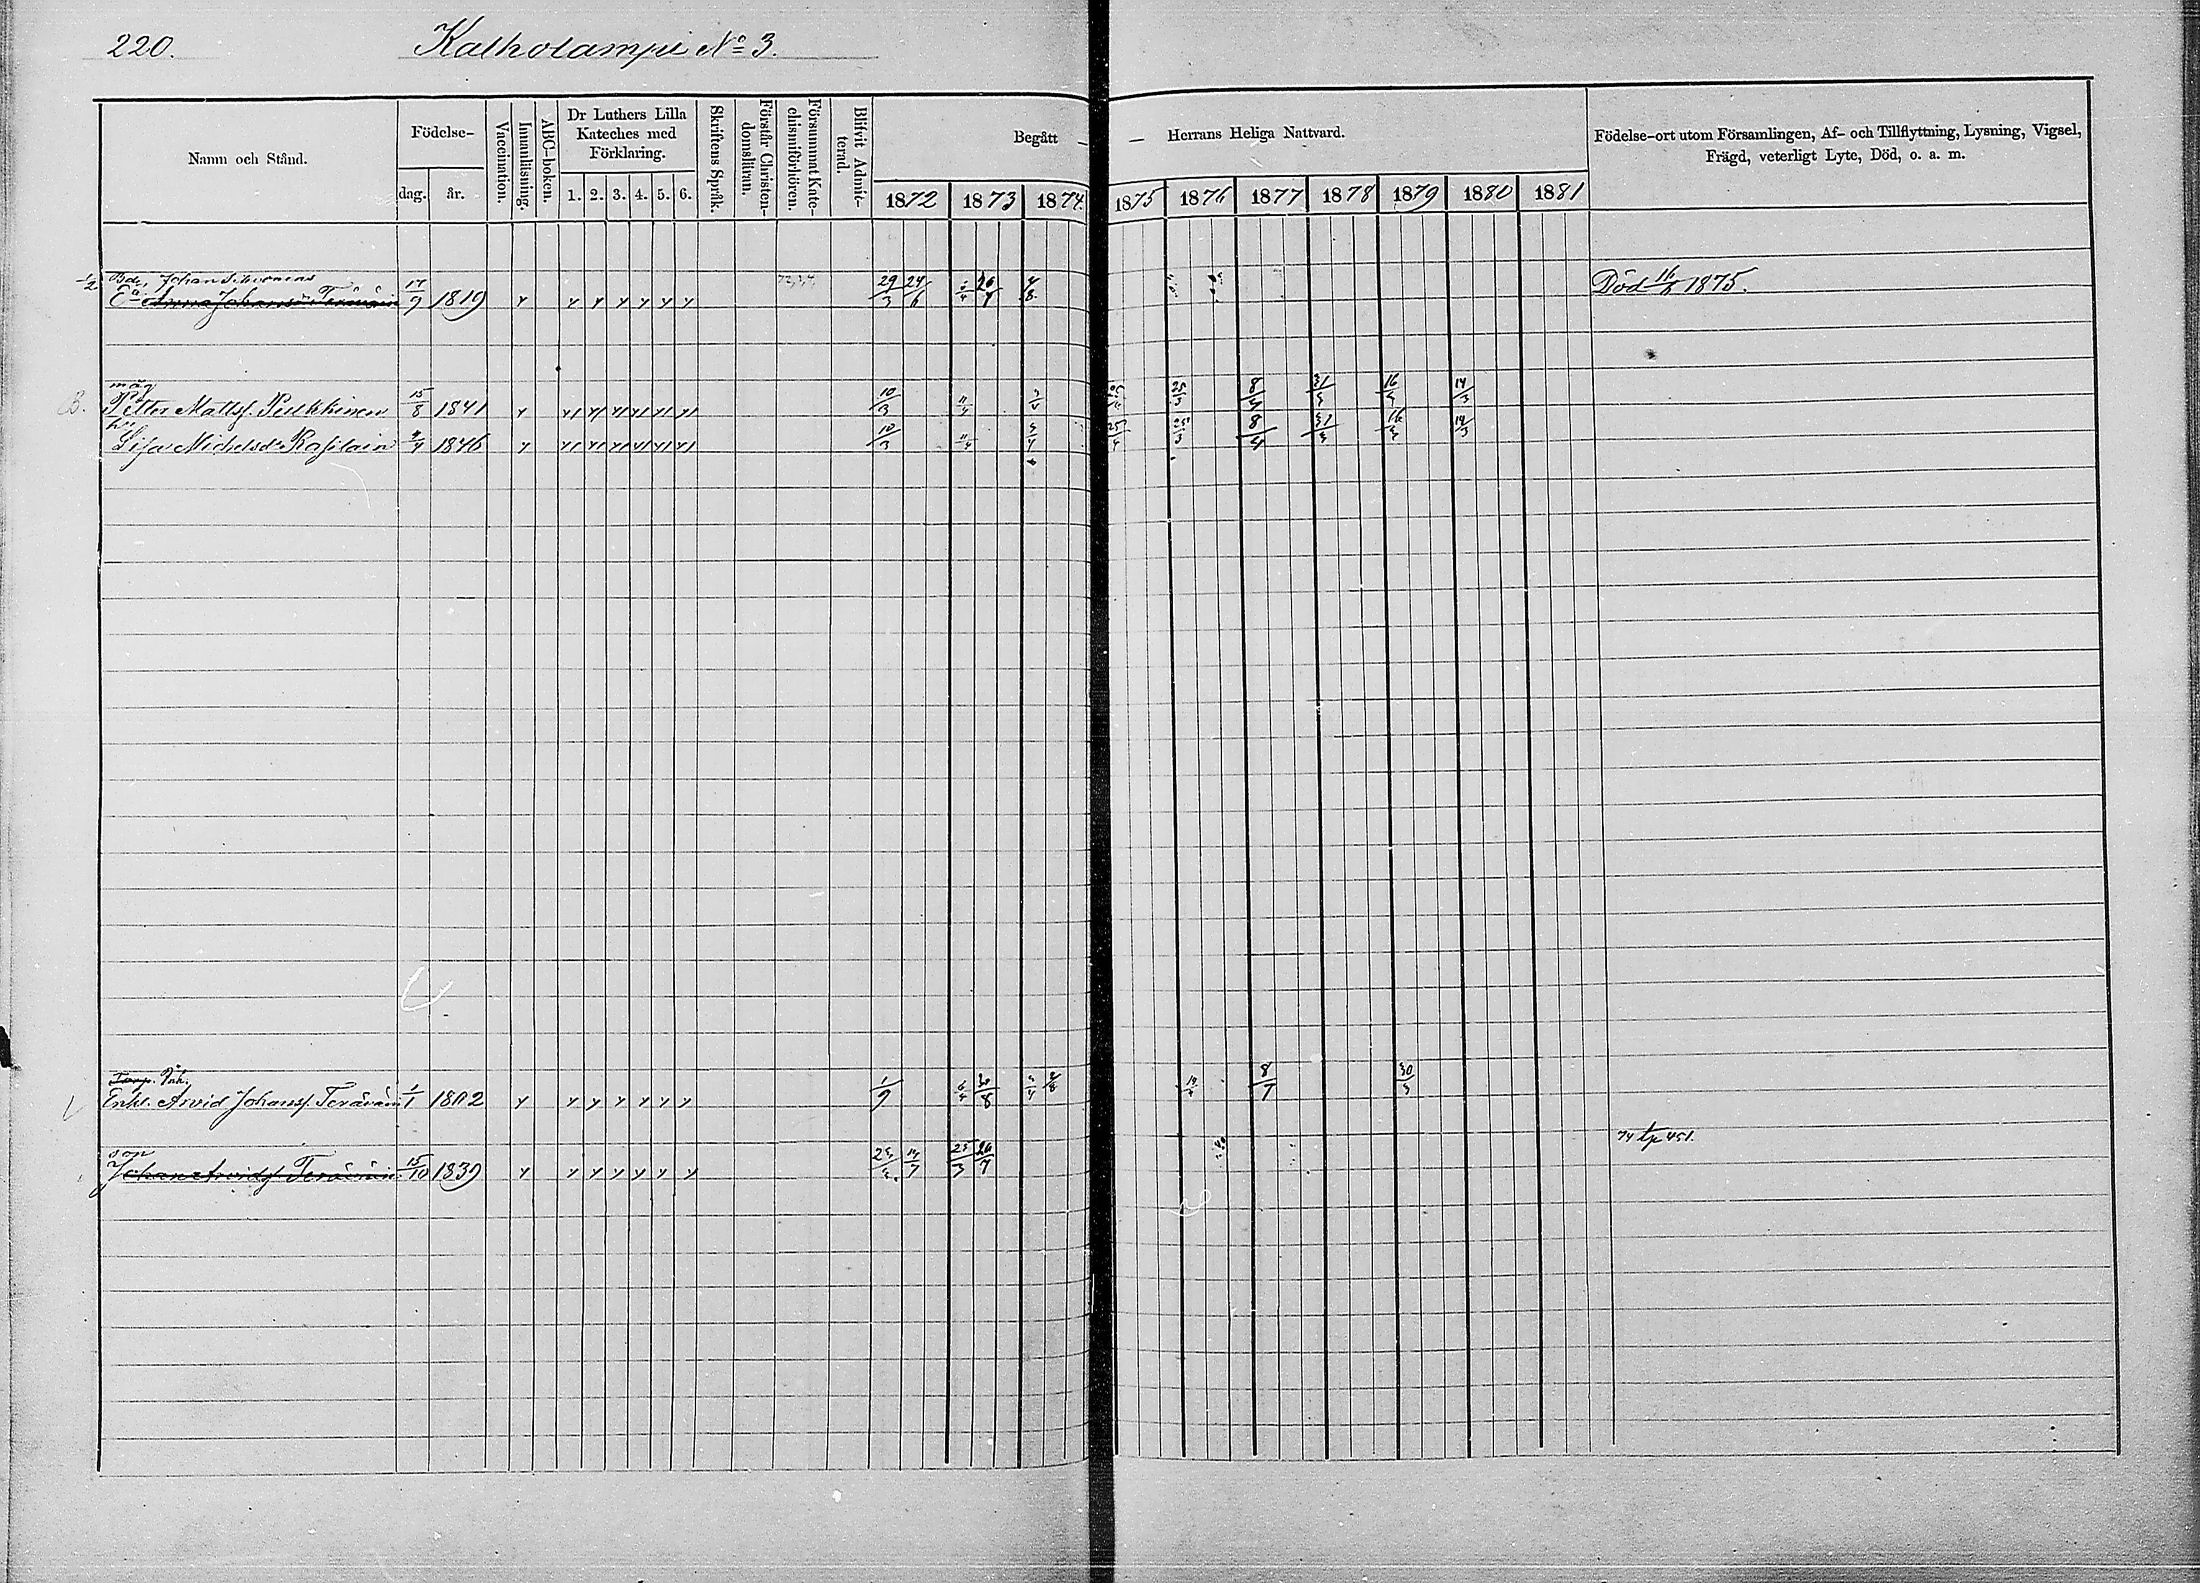 220.
Kalholampi No 3.
Namn och Stånd.
Födelse-
dag.
år.
Vaccination.
Innanläsning.
ABC-boken.
Dr Luthers Lilla
Kateches med
Förklaring.
1. 2. 3. 4. 5. 6.
Skriftens Språk.
Förstår Christen-
domsläran.
Försummat Kate-
chismiförhören.
Blifvit Admit-
terad.
Begått — — Herrans Heliga Nattvard.
1872 1873 1874. 1875 1876 1877 1878 1879 1880 1881
Födelse-ort utom Församlingen, Af- och Tillflyttning, Lysning, Vigsel,
Frägd, veterligt Lyte, Död, o. a. m.
1/2 Bdr, Johan
Eä Anna Johansdr Teräväin 17/9 1819 29/3 24/6 Död 1875.
måg
B. Petter Mattss. Pulkkinen 15/8 1841 10/3 11/4 25/3 8/4 16/3 14/3
hu
Lisa Michelsdr Rasilain 1846 10/3 11/4 25/4 25/3 8/4 16/3 14/3
Torp. Inh.
Enkl. Arvid Johanss. Teräväin 1/1 1802 1/9 6/4 30/8 8/7 30/3
son
Johan Arvidss. Teräväin 15/10 1839 25/3 26/7 74 tp 451.